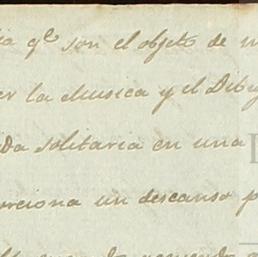 ia qᵉ son el objeto de m
er la Musica y el Dibu
da solitaria en una
orciona un descanso p